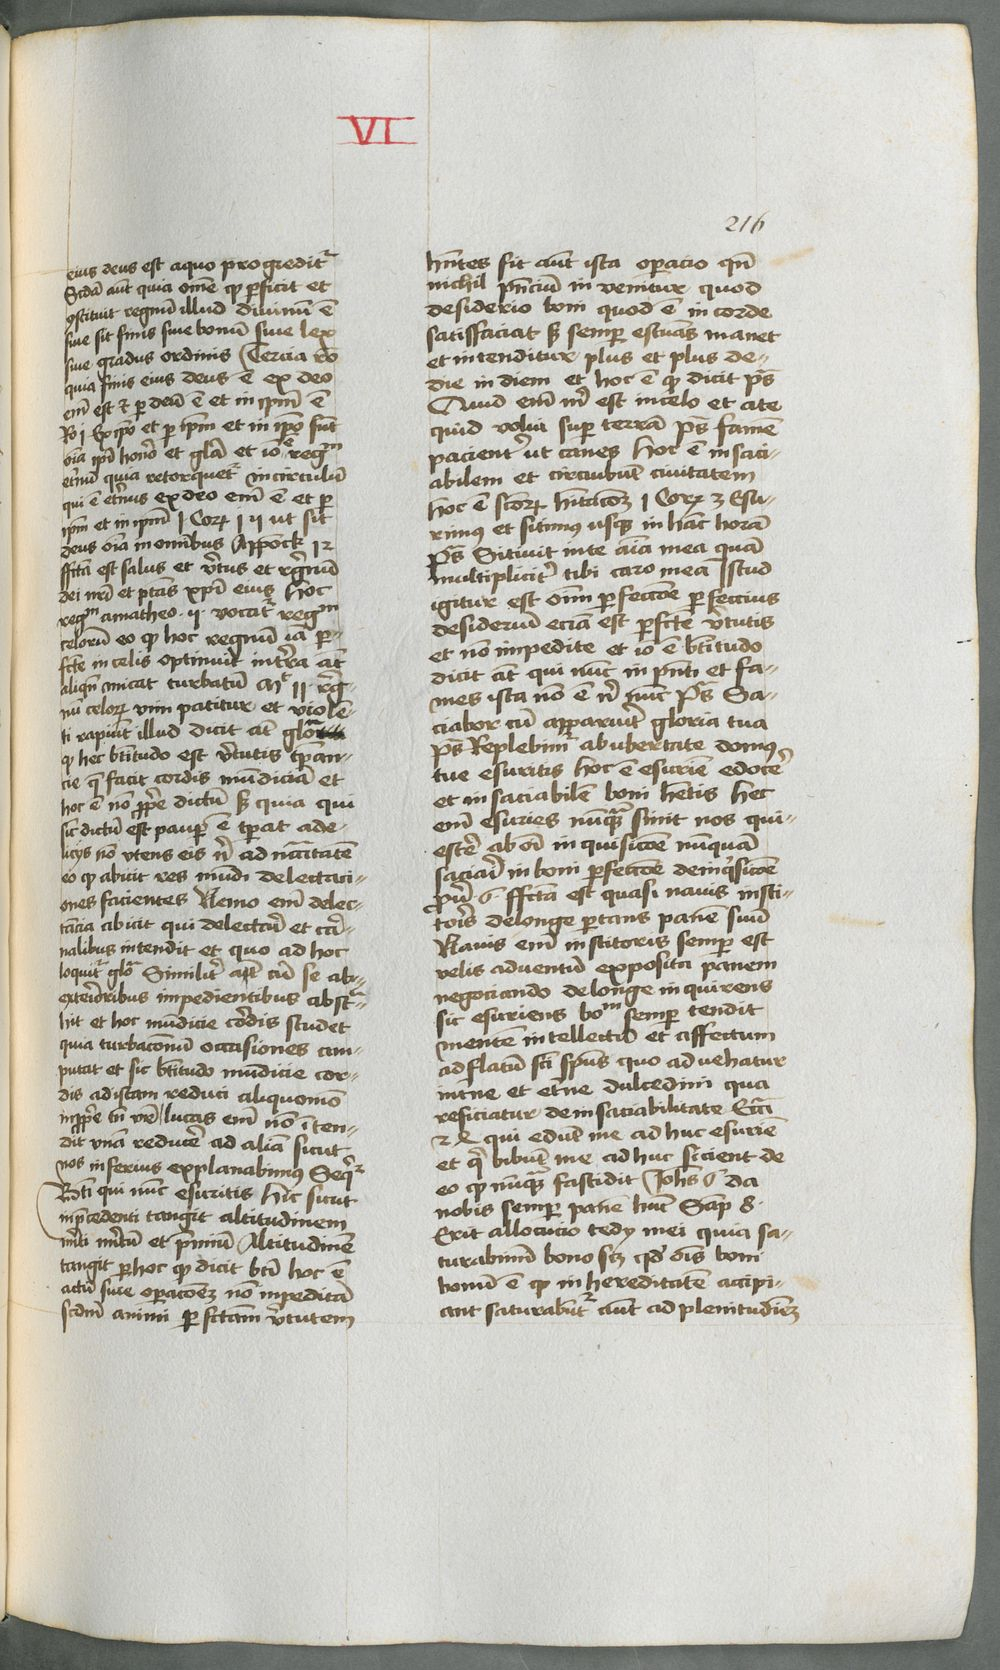 VI
216
eius deus est aquo progreditr
Scda aut quia ome qp perficit et
ostituit regnum illud diuinum e
siue sit finis siue bonum siue lex
siue gradus ordinis Tercia ro
quia finis eius deus e ex deo
em est et per deum e et in ipm e
Ro j Ex ipo et per ipm et in ipo sunt
oia ipi honor et gla et io e regm
etnum quia retorquetr incirculum
qui e etnus ex deo em e et per
ipm et in ipm I Cor ut sit
deus oia in omnibus Appock 12
ffca est salus et vtus et regnum
dei nri et ptas xpi eius hoc
regm amatheo vocatr regm
celorum eo qp hoc regnum ia per-
fcte in celis optinuit intra at
aliqn micat turbatum Mt 11 reg-
nu celor vim patitur et violen-
ti rapiunt illud dicit at glo
qp hec btitudo est vtutis tpan-
cie que facit cordis mundicia et
hoc e no ppre dictum s quia qui
sic dictum est pauper e tpat a de-
licijs non vtens eis n ad ncitatem
eo qp abicit res mundi delectaci-
ones facientes Nemo em delec-
tacia abicit qui delectatr et car-
nalibus intendit et quo ad hoc
loquitr glo Similitr cum se ab
exterioribus impedientibus abstra-
hit et hoc mundicie cordis studet
quia turbaconum occasiones am-
putat et sic btitudo mundicie cor-
dis ad istam reduci aliquomo
inppre tn vre lucas em no inten-
dit vna reducere ad alia sicut
nos inferius explanabimus Seqr
Bti qui nunc esuritis hic sicut
inprecedenti tangit altitudinem
mti mitum et premium Altitudine
tangit per hoc qp dicit bti hoc e
actum siue operacoem no inpedita
scdm animi perfctam vtutem
hntes sit aut ista operacio qn
nichil pnciu in venitur quod
desiderio boni quod e in corde
satisfaciat s semper estuas manet
et intenditur plus et plus de-
die in diem et hoc e qp dicit ps
Quid em m est in celo et a te
quid volui super terra ps fame
pacientr ut canes hoc e in saci-
abilem et circuibunt ciuitatem
hoc e scor hitacoem I Cor Esu-
rimus et sitimus usque in hanc hora
ps Sitiuit in te aia mea qua
multiplicitr tibi caro mea Istud
igitur est oim perfeccoe perfeccius
desiderium ecia est perfcte vtutis
et no impedite et io e btitudo
dicit at qui nunc in pnti et fa-
mes ista no e n nunc Ps Sa-
ciabor cum apparuit gloria tua
ps Replebimr ab ubertate domus
tue esuritis hoc e esurie edoce
et in saciabile boni hntis hec
em esuries nunquam sinit nos qui-
escere ab oi in quisicoe nunquam
saciari in boni perfeccoe de inqsicoe
ffcta est quasi nauis insti-
toris de longe portans panem suum
Nauis em institoris semper est
velis aduentum exposita panem
negociando de longe inquirens
sic esuriens bom semper tendit
mentem intellectum et affectum
ad flatum sci spus quo ad vehatur
intne et etne dulcedini qua
reficiatur de in saciabilitate Ecci
24 qui edunt me ad huc esurie
et q bibunt me ad huc sicient de
eo qp nunqua fastidit Johs 6 da
nobis semper pane hunc Sap 8
Erit allocucio tedij mei quia sa-
turabimi bono sz qd ois boni
bonum e qp in hereditate accipi-
ant saturabuntr aut ad plenitudiem